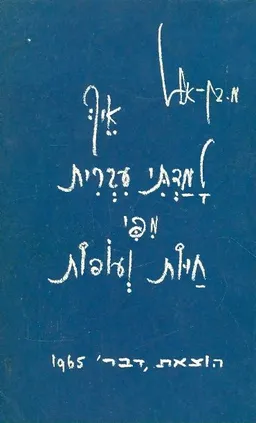 מ. בן-
אֵיךְ
לָמַדְתִּי עִבְרִית
מִפִּי
חַיּוֹת וְעוֹפוֹת
הוצאת ,דבר' 1965